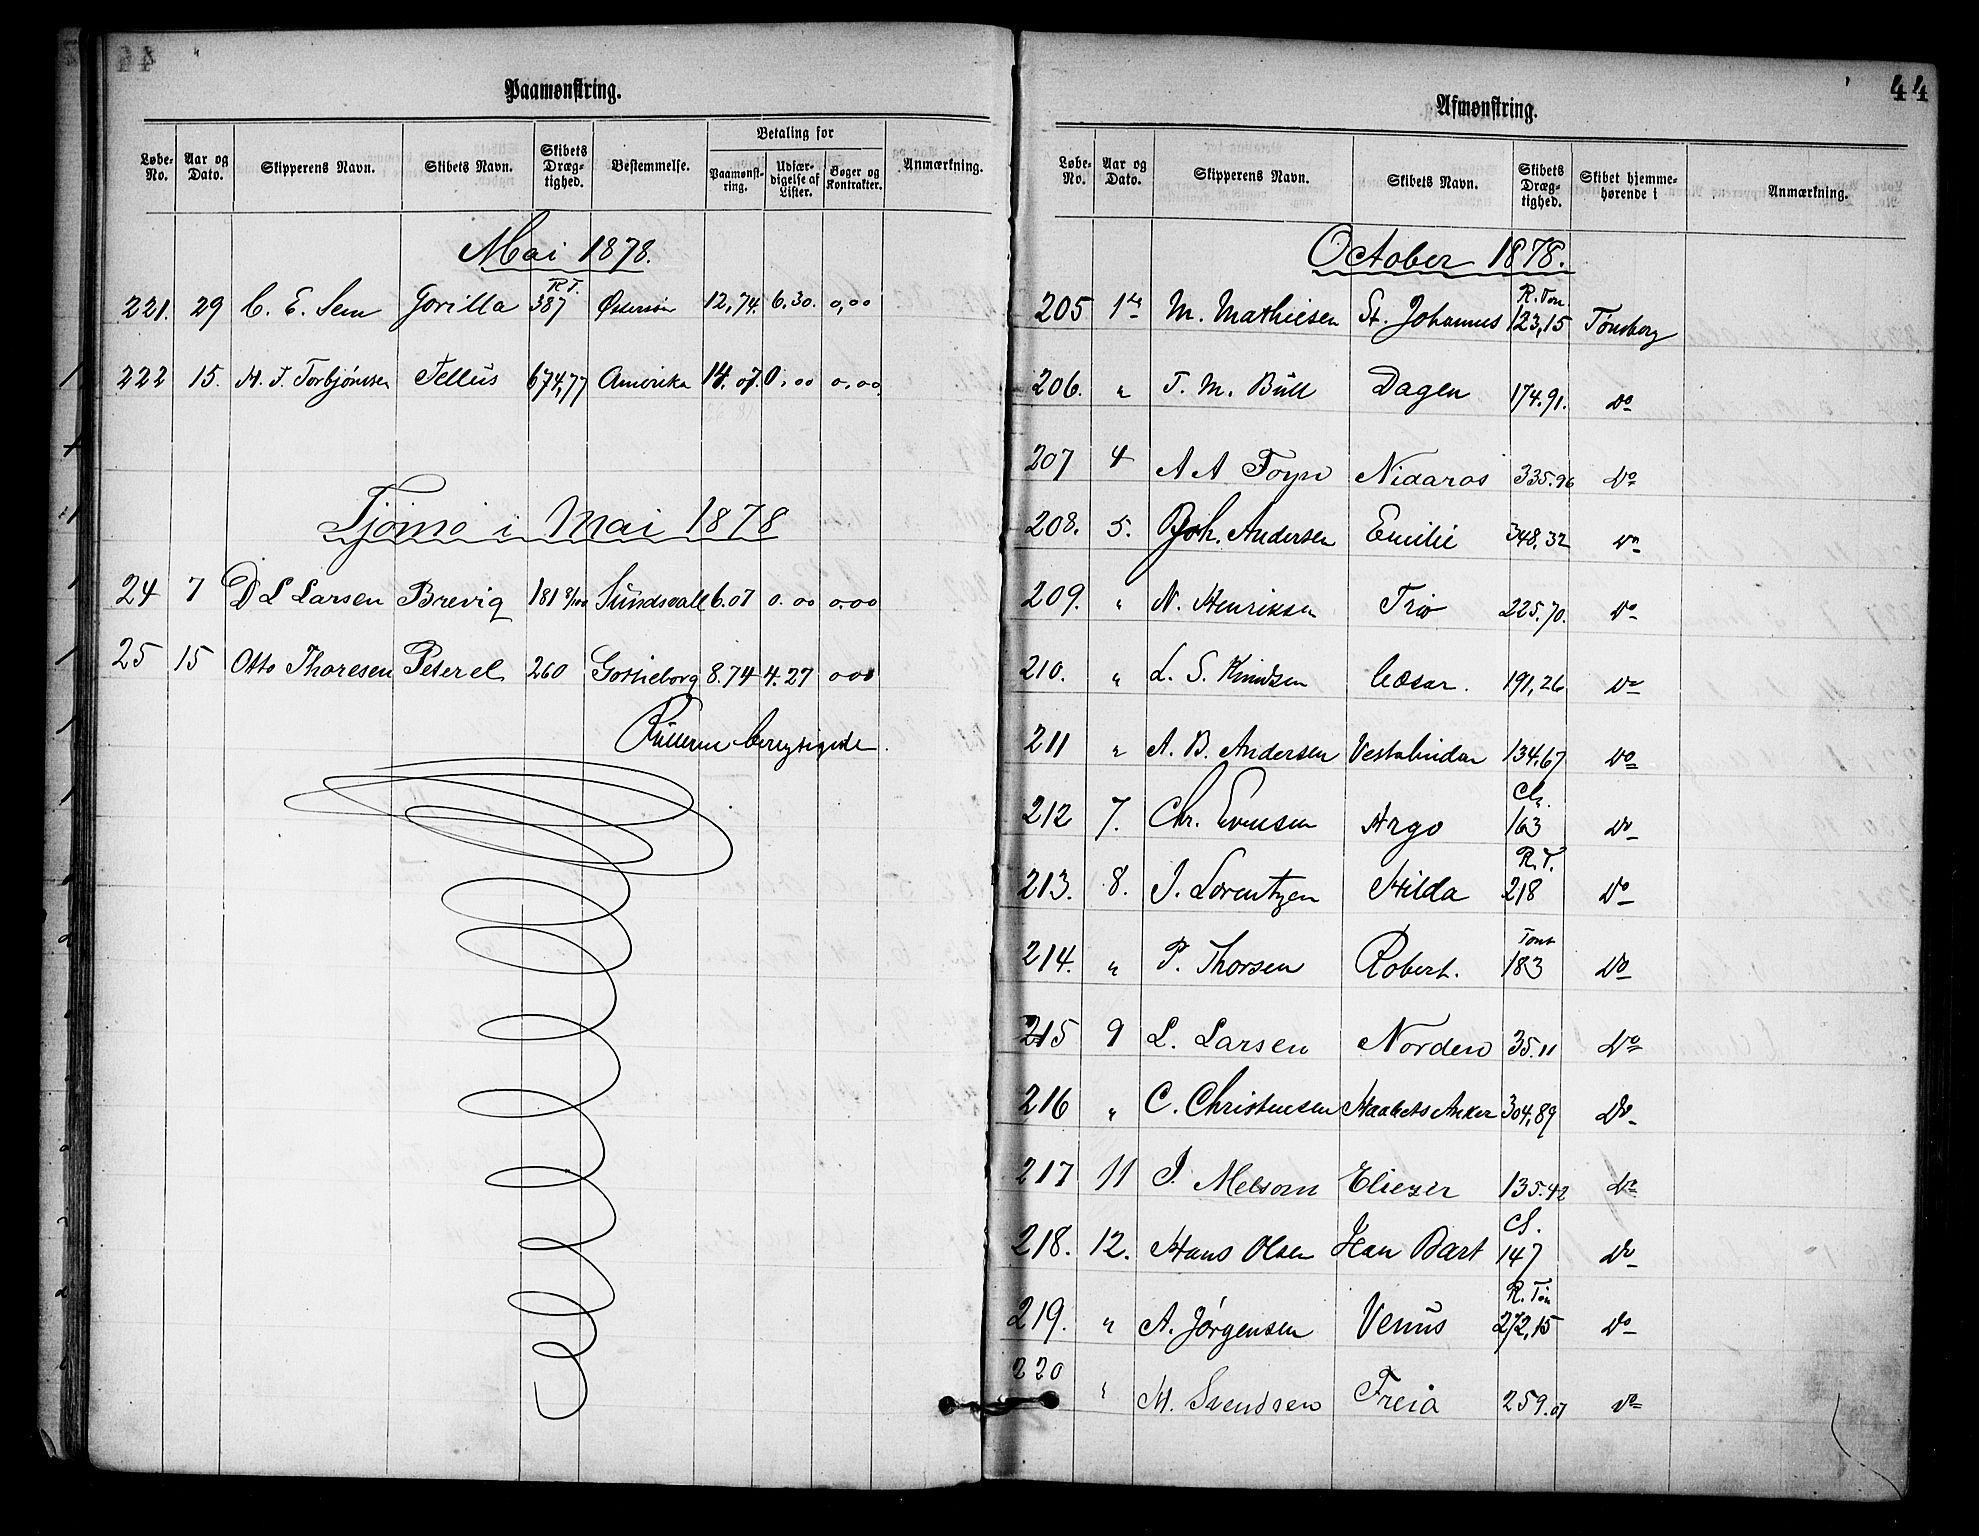 Paamønstring.
Løbe-No. Aar og Dato. Skipperens Navn. Skibets Navn. Skibets Dræg-tighed. Bestemmelse. Betaling for Paamønst-ring. Udfær-digelse af Lister. Bøger og Kontrakter. Anmærkning.
Mai 1878.
R T.
221. 29 C. E. Sem Gorilla 387 Østersøn 12,74. 6.30. 0,00
222 15. H. T. Torbjørnsen Tellus 674,77 Amerika 14.07. 0,00 0,00
Tjømø i Mai 1878
24 7 D L Larsen Brevig 181 Sundsvall 6.07 0.00 0,00
25 15 Otto Thoresen Peterel 260 Gottieborg 8.74 4.27 0 00
44
Afmønstring.
Løbe-No. Aar og Dato. Skipperens Navn. Skibets Navn. Skibets Dræg-tighed. Skibet hjemme-hørende i Anmærkning.
October 1878.
R. Ton.
205 1ste M. Mathiesen St. Johannes 123,15 Tønsberg
206. " T. M. Bull Dagen 174.91. Do
207 4 A A Foyn Nidaros 335.96 Do
208. 5. Joh. Andersen Emilie 348.32 Do
209. " N. Henriksen Trio 225.70. Do
210. " L. S. Knudsen Cæsar. 191,26 Do
211 " A. B. Andersen Vestalinden 134.67 Do
Cl.
212 7. Chr. Evensen Argo 163 Do
R. T.
213. 8. J. Lorentzen Hilda 218 Do
Tons
214. " P. Thorsen Robert. 183 Do
215 9 L. Larsen Norden 35.11 Do
216 " C. Christensen Haabets Anker 304,89 Do
217 11 J. Melsom Eliezer 135.42 Do
Cl.
218. 12. Hans Olsen Jean Bart 147 Do
R. Ton
219. " A. Jørgensen Venus 272,15 Do
220 " M. Svendsen Freia 259.07 Do